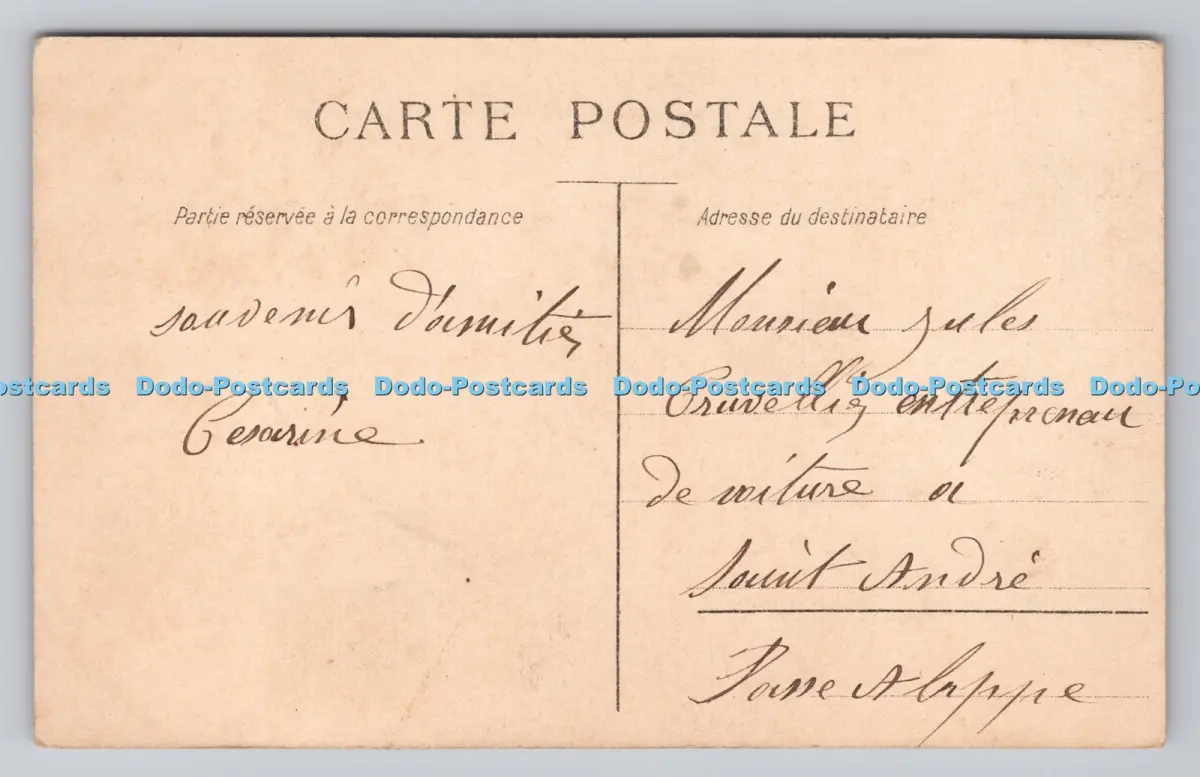 CARTE POSTALE
Partie réservée à la correspondance
souvenir d'amitié
Cesarine
Adresse du destinataire
Monsieur Jules
Pruvelliez entreprenau
de voiture a
Saint André
Passe A lappe
ostcards Dodo-Postcards Dodo-Postcards Dodo-Postcards Dodo-Postcards Dodo-Po